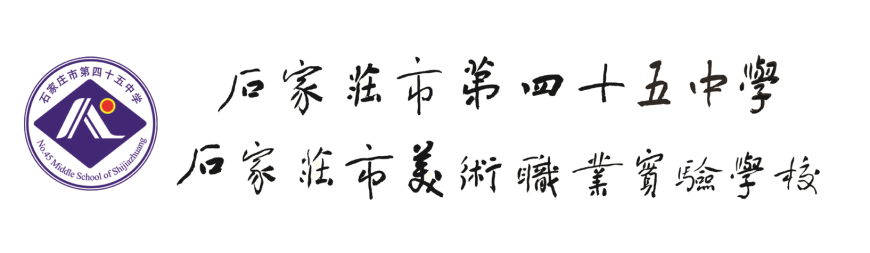 石家庄市第四十五中学
No.45 Middle School of Shijiazhuang
石家莊市第四十五中學
石家莊市美術職業實驗學校